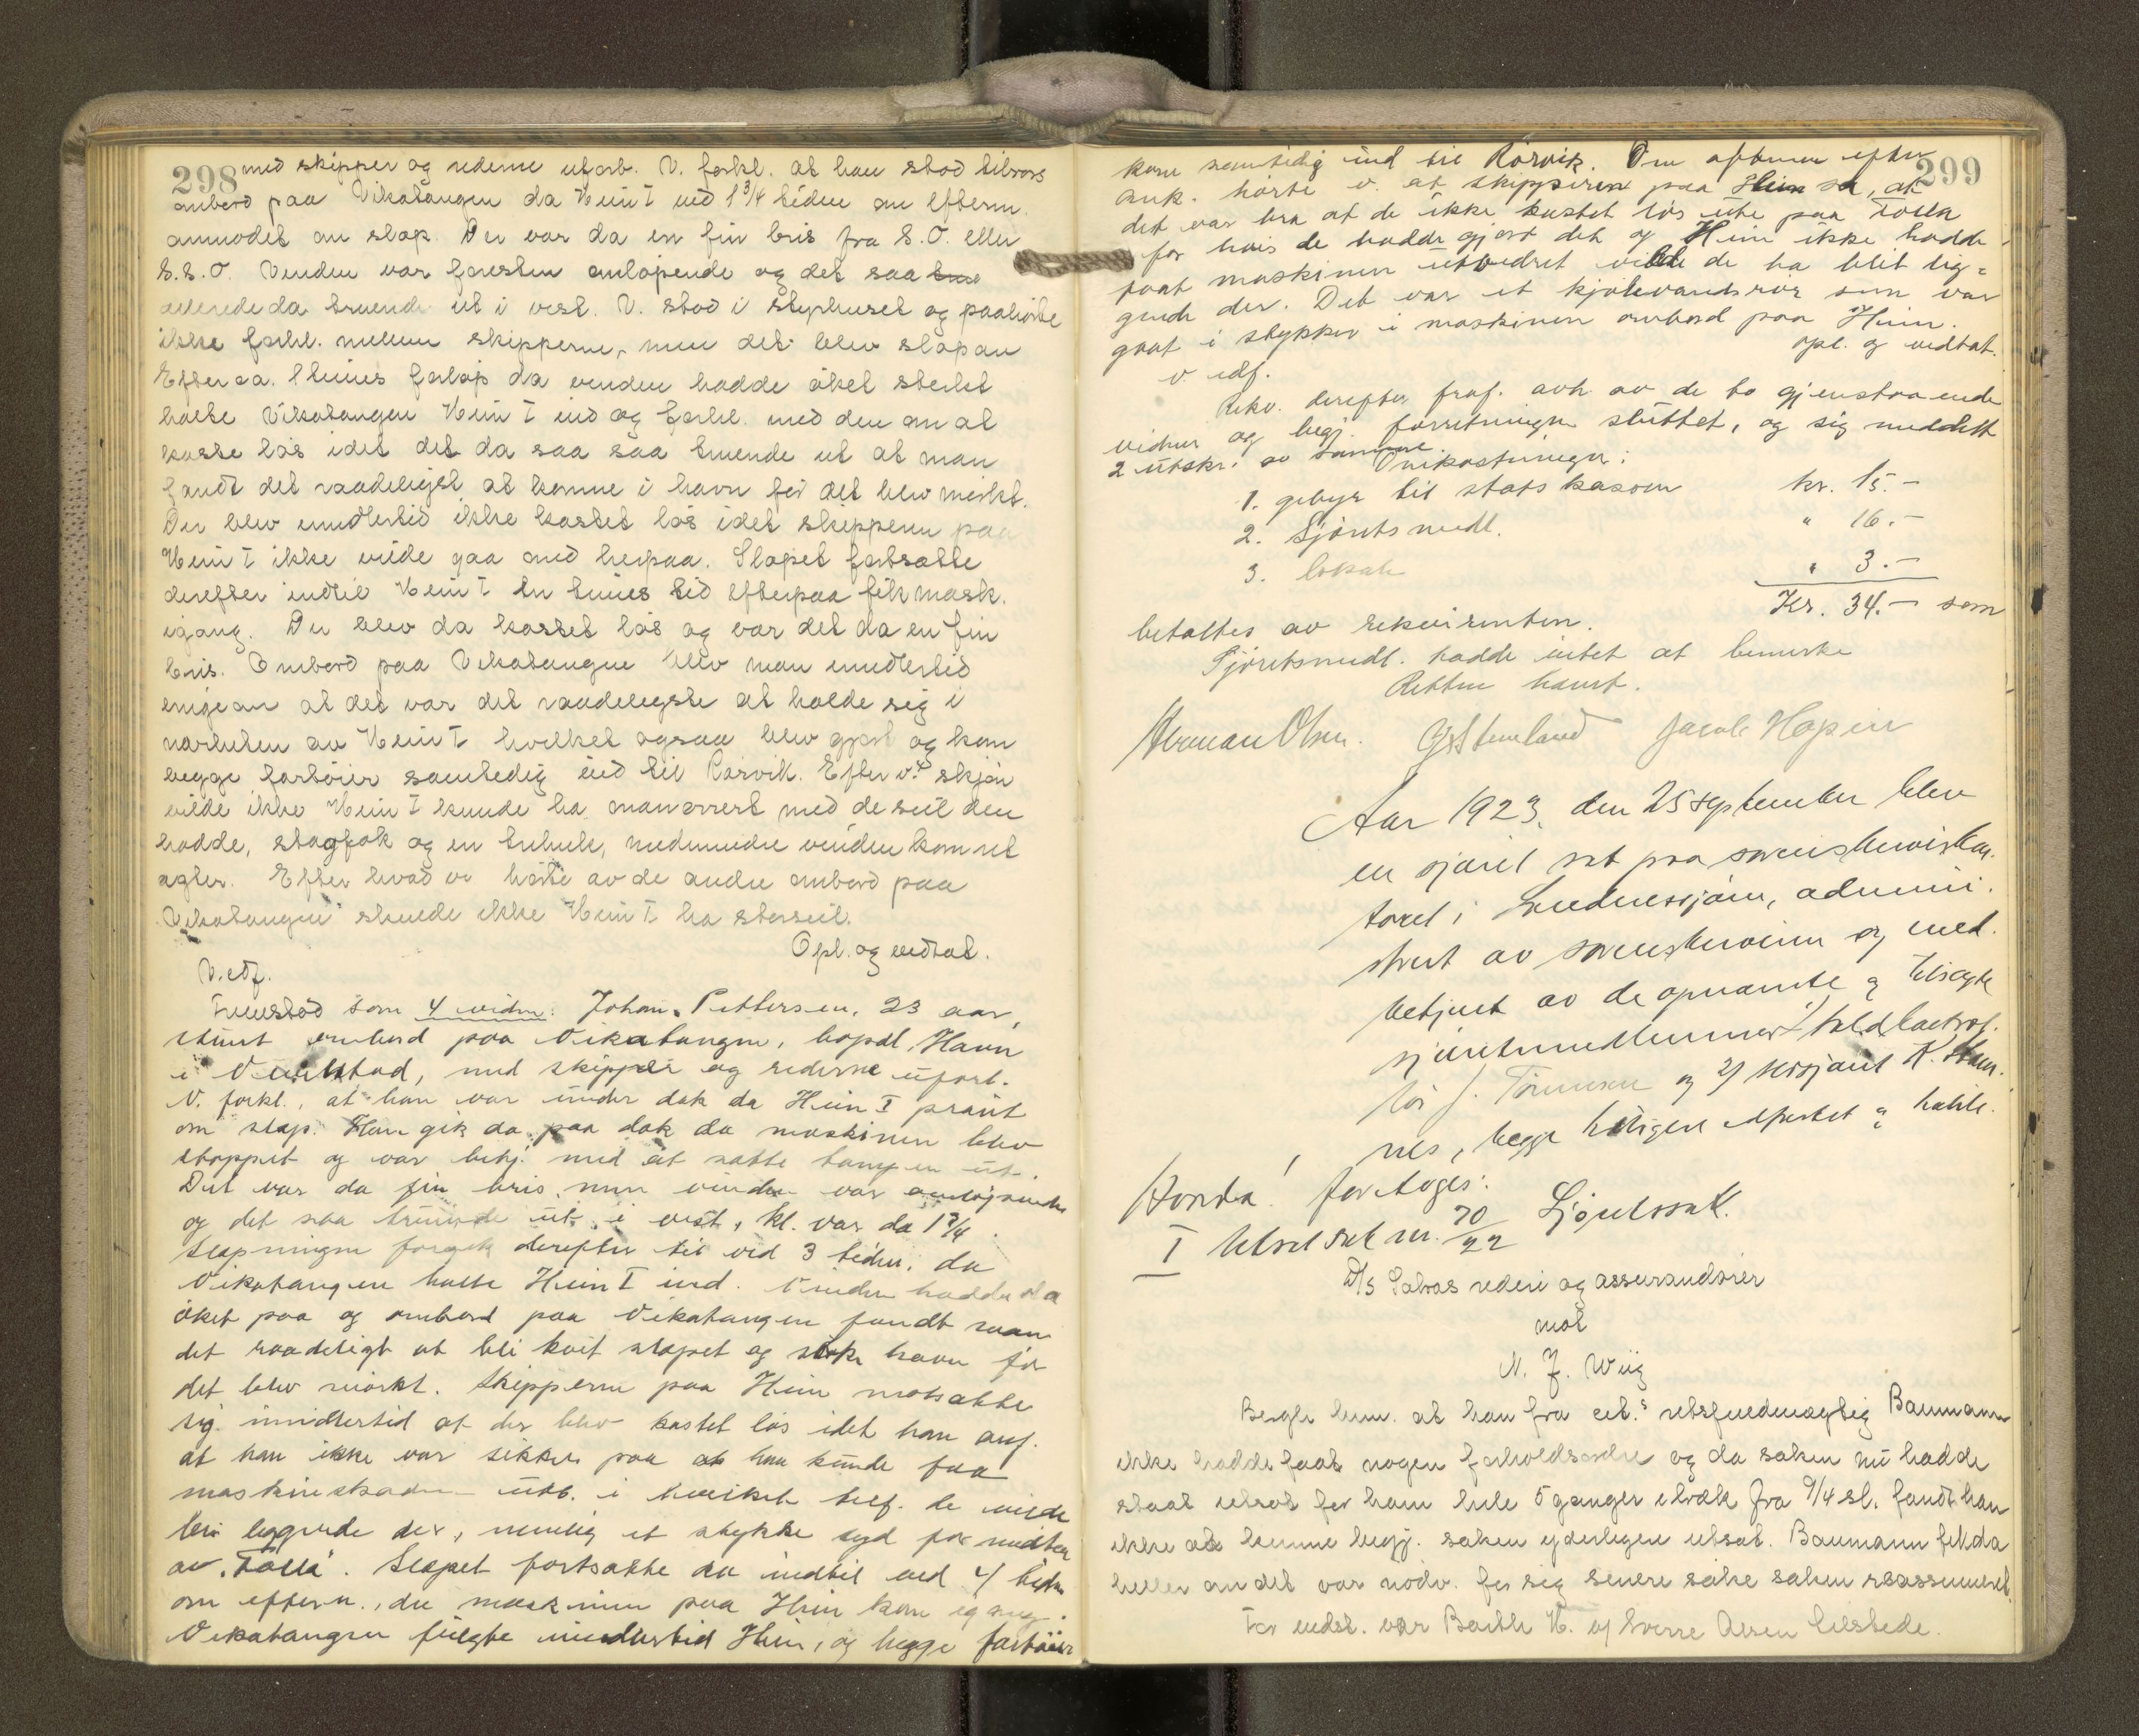 298 med skipper og rederne uforb. V. forkl. at han stod tilrors
ombord paa Vikatangen da Heim I ved 1 3/4 tiden om efterm.
anmodet om slæp. Der var da en fin bris fra S.O. eller
S.S.O. Vinden var foresten omløpende og det saa
allerede da truende ut i vest. V. stod i styrhuset og paahørte
ikke forhl. mellem skipperne, men det blev slæp av
Efter ca. 1 times forløp da vinden hadde øket sterkt
halte Vikatangen Heim I ind og forhl. med den om at
kaste løs idet det da saa saa truende ut at man
fandt det raadeligst at komme i havn før det blev mørkt.
Der blev imidlertid ikke kastet løs idet skipperen paa
Heim I ikke vilde gaa med herpaa. Slæpet fortsatte
derefter indtil Heim I en times tid efterpaa fik mask.
igang. Der blev da kastet løs og var det da en fin
bris. Ombord paa Vikatangen blev man imidlertid
enige om at det var det raadeligste at holde sig i
nærheten av Heim I hvilket ogsaa blev gjort og kom
begge fartøier samtidig ind til Rørvik. Efter v.s skjøn
vilde ikke Heim I kunde ha manøvrert med de seil den
hadde, stagfok og en trehule, medmindre vinden kom ret
agter. Efter hvad v. hørte av de andre ombord paa
Vikatangen skulde ikke Heim I ha storseil.
Opl. og vedtat.
V. edf.
Fremstod som 4 vidne: Johan Pettersen, 23 aar,
stuert ombord paa Vikatangen, bopæl Havn
i Vevelstad, med skipper og rederne uforb.
V. forkl., at han var under dæk da Heim I praiet
om slæp. Han gik da paa dæk da maskinen blev
stoppet og var behj. med at sætte tampen ut.
Det var da fin bris, men vinden var omløpende
og det saa truende ut i vest, kl. var da 1 3/4.
Slæpningen foregik derefter til ved 3 tiden, da
Vikatangen halte Heim I ind. Vinden hadde da
øket paa og ombord paa Vikatangen fandt man
det raadeligt at bli kvit slæpet og søke havn før
det blev mørkt. Skipperen paa Heim motsatte
sig imidlertid at der blev kastet løs idet han anf.
at han ikke var sikker paa at han kunde faa
maskinskaden utb. i hvilket tilf. de vilde
bli liggende der, nemlig et stykke syd for midten
av "Folla". Slæpet fortsatte da indtil ved 4 tiden
om efterm., da maskinen paa Heim kom igang.
Vikatangen fulgte imidlertid Heim, og begge fartøier
299
kom samtidig ind til Rørvik. Om aftenen efter
ank. hørte v. at skipperen paa Heim sa, at
det var bra at de ikke kastet løs ute paa Folla
for hvis de hadde gjort det og Heim ikke hadde
faat maskinen utbedret vilde de ha blit lig=
gende der. Det var et kjølevandsrør som var
gaat i stykker i maskinen ombord paa Heim.
opl. og vedtat.
v. edf.
Rekv. derefter fraf. avh. av de to gjenstaaende
vidner og begj. forretningen sluttet, og sig meddelt
2 utskr. av samme.
Omkostninger:
1. gebyr til statskassen kr. 15.-
2. Sjøretsmedl. " 16.-
3. lokale " 3.-
Kr. 34.- som
betaltes av rekvirenten.
Sjøretsmedl. hadde intet at bemerke
Retten hævet.
Herman Olsen. Jacob Hopen
Aar 1923, den 25 september blev
en sjøret sat paa sorenskriverkon-
toret i Brønnøysund, admini-
strert av sorenskriveren og med-
betjent av de opnævnte og tilsagte
sjøretsmedlemmer 1/
J. Tønnesen og 2/ sersjant K.
nes, begge tidligere edfæstet og habile.
Hvorda! foretoges:
I Utsat sak nr. 70/22 Sjøretssak.
D/S Salvas rederi og assurandører
mot
N. J. Wiig
Bergh bem. at han fra cit.s retsfuldmægtig Baumann
ikke hadde faat nogen forholdsordre og da saken nu hadde
staat utsat for ham hele 5 ganger i træk fra 9/4 sl. fandt han
ikke at kunne begj. saken yderligere utsat. Baumann fik da
heller om det var nødv. for sig senere søke saken reassumeret.
For indst. var Barth v/ Sverre Olsen tilstede.